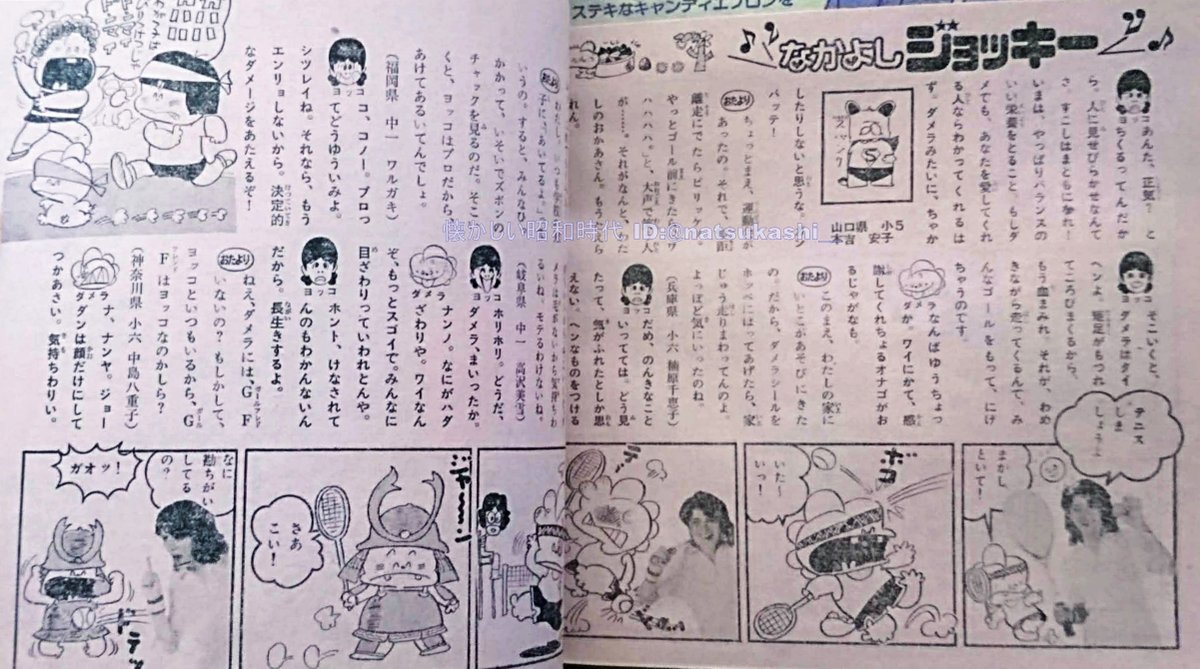 ステキなキャンディエプロンを
なかよしジョッキー
ヨッコ
あんた、正気？
ちくるってんだか
ら、人に見せびらかせなんて
さ。すこしはまともになれ。
いまは、やっぱりバランスの
いい栄養をとること、もしダ
メでも、あなたを愛してくれ
る人ならわかってくれるは
ず。ダメラみたいに、ちゃか
したりしないと思うな。ク
バッテ！
山口県　小5
本吉　安子
おたより
ちょっとまえ、運動会が
あったの。それで、
離走にでたらビリッケ
やっとゴール前にきたら、ワ
ハハハハ。と、大声で笑う人
が……。それがなんと、わた
しのおかあさん。もう走ら
れん。
ヨッコ
そこいくと、
ダメラはタイ
ヘンよ。短足がもつれ
てころびまくるから、
もう血まみれ。それが、わめ
きながら走ってくるんで、み
んなゴールをもって、にげ
ちゃうのです。
ダメラ
なんばゆうちょっ
か。ワイにかて、感
謝してくれちょるオナゴがお
るじゃがなも。
おたより
このまえ、わたしの家に
いとこがあそびにきた
の。だから、ダメラシールを
ホッペにはってあげたら、家
じゅう走りまわってんのよ。
よっぽど気にいったのね。
（兵庫県　小六　柚原千恵子）
ヨッコ
だめ、のんきなこと
いってては。どう見
たって、気がふれたとしか思
えない。ヘンなものをつける
いうの。すると、みんなひっ
かかって、いそいでズボンの
チャックを見るのだ。そこ
くと、ヨッコはプロだから、
あけてあるいてんでしょ。
（福岡県　中一　ワルガキ）
ヨッコ
コ、コノー。プロっ
てどうゆういみよ。
シツレイね。それなら、もう
エンリョしないから。決定的
なダメージをあたえるぞ！
るいね。モテるわけないね。
（岐阜県　中一　高沢美雪）
ヨッコ
ホリホリ。どうだ、
ダメラ、まいったか。
ダメラ
ナンノ。なにがハダ
ざわりや。ワイなん
ぞ、もっとスゴイで。みんなに
目ざわりっていわれとんや。
ヨッコ
ホント、けなされて
んのもわかんないん
だから。長生きするよ。
おたより
ねえ、ダメラにはG・F
いないの？もしかして、
ヨッコといつもいるから、G・
Fはヨッコなのかしら？
（神奈川県　小六　中島八重子）
ダメラ
ナ、ナンヤ。ジョー
ダンは顔だけにして
つかあさい。気持ちわりい。
テニス
しま
しょうよ
まかし
といて！
ボコ
いた～
いっ！
ジャーン！
さあ
こい！
なに
勘ちがい
してる
の？
ガオッ！
懐かしい昭和時代 ID:@natsukashi__